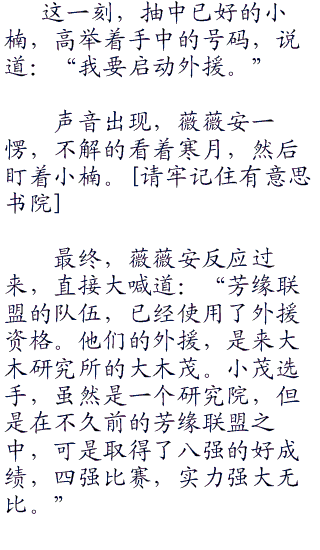 这一刻，抽中已好的小
楠，高举着手中的号码，说
道：“我要启动外援。”
声音出现，薇薇安一
愣，不解的看着寒月，然后
盯着小楠。[请牢记住有意思
书院]
最终，薇薇安反应过
来，直接大喊道：“芳缘联
盟的队伍，已经使用了外援
资格。他们的外援，是来大
木研究所的大木茂。小茂选
手，虽然是一个研究院，但
是在不久前的芳缘联盟之
中，可是取得了八强的好成
绩，四强比赛，实力强大无
比。”